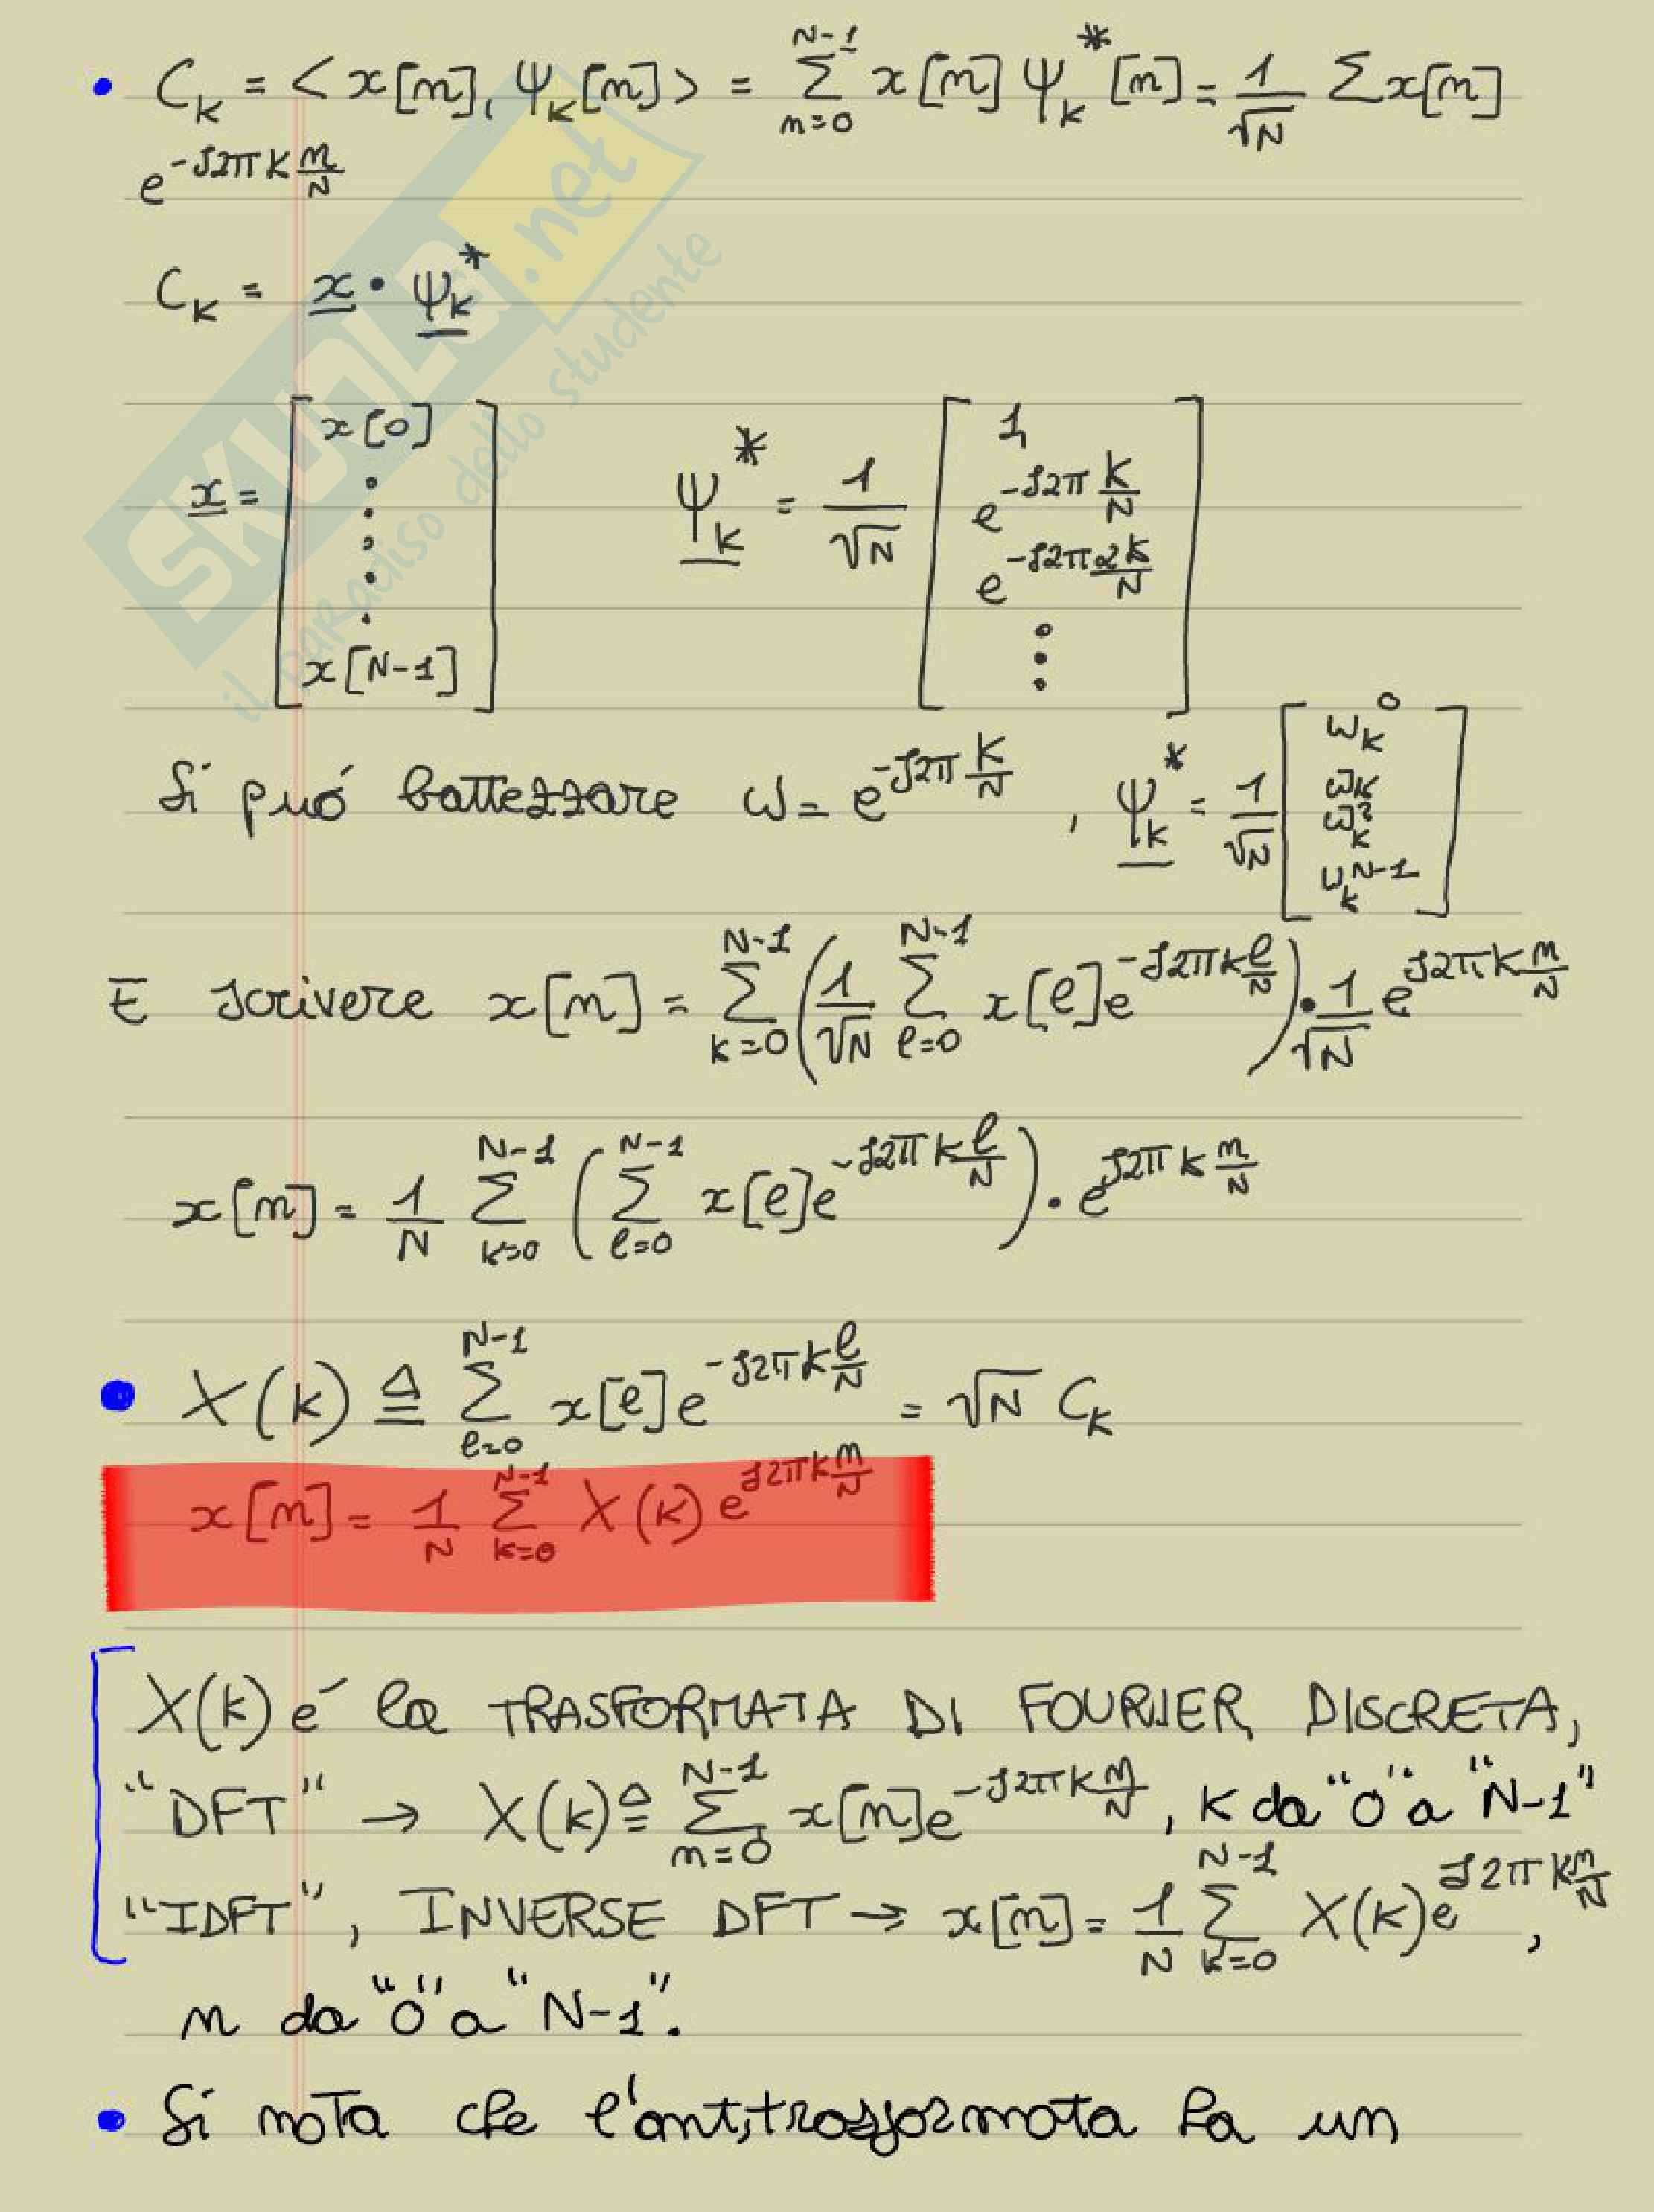 • C_k = <x[n], Ψ_k[n]> = Σ_{n=0}^{N-1} x[n] Ψ_k^*[n] = 1/√N Σ x[n]
e^{-j2πk n/N}
C_k = x · Ψ_k^*
x = [x[0] ⋮ x[N-1]]   Ψ_k^* = 1/√N [1, e^{-j2π k/N}, e^{-j2π 2k/N}, ⋮]
Si puó battezzare ω = e^{-j2π k/N}, Ψ_k^* = 1/√N [ω_k^0, ω_k, ω_k^2, ω_k^{N-1}]
E scrivere x[n] = Σ_{k=0}^{N-1} (1/√N Σ_{l=0}^{N-1} x[l]e^{-j2πk l/N}) · 1/√N e^{j2πk n/N}
x[n] = 1/N Σ_{k=0}^{N-1} (Σ_{l=0}^{N-1} x[l]e^{-j2πk l/N}) · e^{j2πk n/N}
• X(k) ≜ Σ_{l=0}^{N-1} x[l]e^{-j2πk l/N} = √N C_k
x[n] = 1/N Σ_{k=0}^{N-1} X(k) e^{j2πk n/N}
X(k) é la TRASFORMATA DI FOURIER DISCRETA,
"DFT" → X(k) ≜ Σ_{n=0}^{N-1} x[n]e^{-j2πk n/N}, k da "0" a "N-1"
"IDFT", INVERSE DFT → x[n] = 1/N Σ_{k=0}^{N-1} X(k)e^{j2πk n/N},
n da "0" a "N-1".
• Si nota che l'antitrasformata ha un
SKUOLA.net
il paradiso dello studente